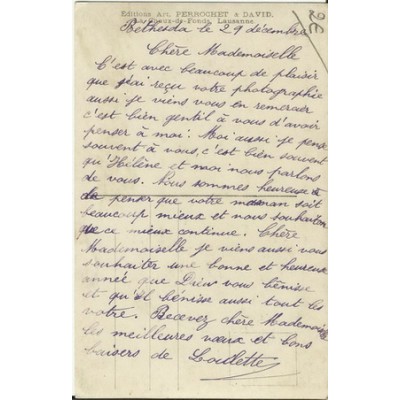 Editions Art. PERROCHET & DAVID.
La Chaux-de-Fonds, Lausanne
Bethesda le 29 décembre
Chère Mademoiselle
C'est avec beaucoup de plaisir
que j'ai reçu votre photographie
aussi je viens vous en remercier
c'est bien gentil à vous d'avoir
penser à moi. Moi aussi je pense
souvent à vous, c'est bien souvent
qu'Hélène et moi nous parlons
de vous. Nous sommes heureuse
de penser que votre maman soit
beaucoup mieux et nous souhaitons
que ce mieux continue. Chère
Mademoiselle je viens aussi vous
souhaiter une bonne et heureuse
année que Dieu vous bénisse
et qu'il bénisse aussi tout les
votre. Recevez chère Mademoiselle
les meilleures vœux et bons
baisers de Loulette